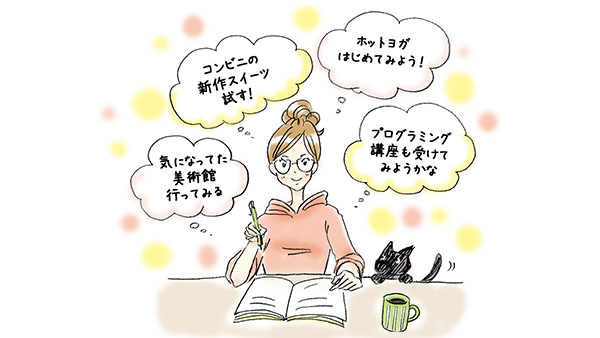 コンビニの
新作スイーツ
試す！
ホットヨガ
はじめてみよう！
気になってた
美術館
行ってみる
プログラミング
講座も受けて
みようかな